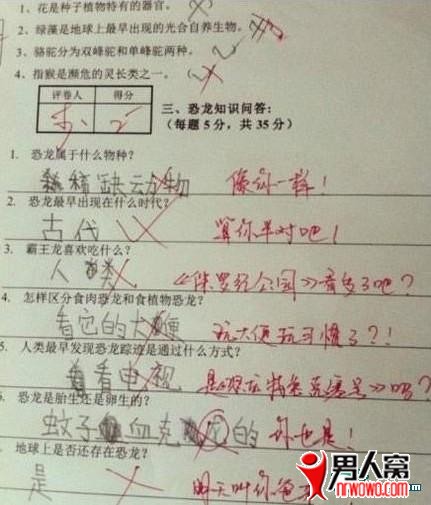 1、花是种子植物特有的器官。
2、绿藻是地球上最早出现的光合自养生物。
3、骆驼分为双峰驼和单峰驼两种。
4、指猴是濒危的灵长类之一。
评卷人 得分
三、恐龙知识问答:
(每题 5 分,共 35 分)
1. 恐龙属于什么物种?
稀缺动物 像你一样!
2. 恐龙最早出现在什么时代?
古代 算你半对吧!
3. 霸王龙喜欢吃什么?
人类 《侏罗纪公园》看多了吧?
4. 怎样区分食肉恐龙和食植物恐龙?
看它的大便 玩大便玩习惯了?!
5. 人类最早发现恐龙踪迹是通过什么方式?
看电视 是《恐龙特急克塞号》吗?
恐龙是胎生还是卵生的?
蚊子血克龙的 你也是!
地球上是否还存在恐龙?
是 明天叫你爸
男人窝
nrwowo.com